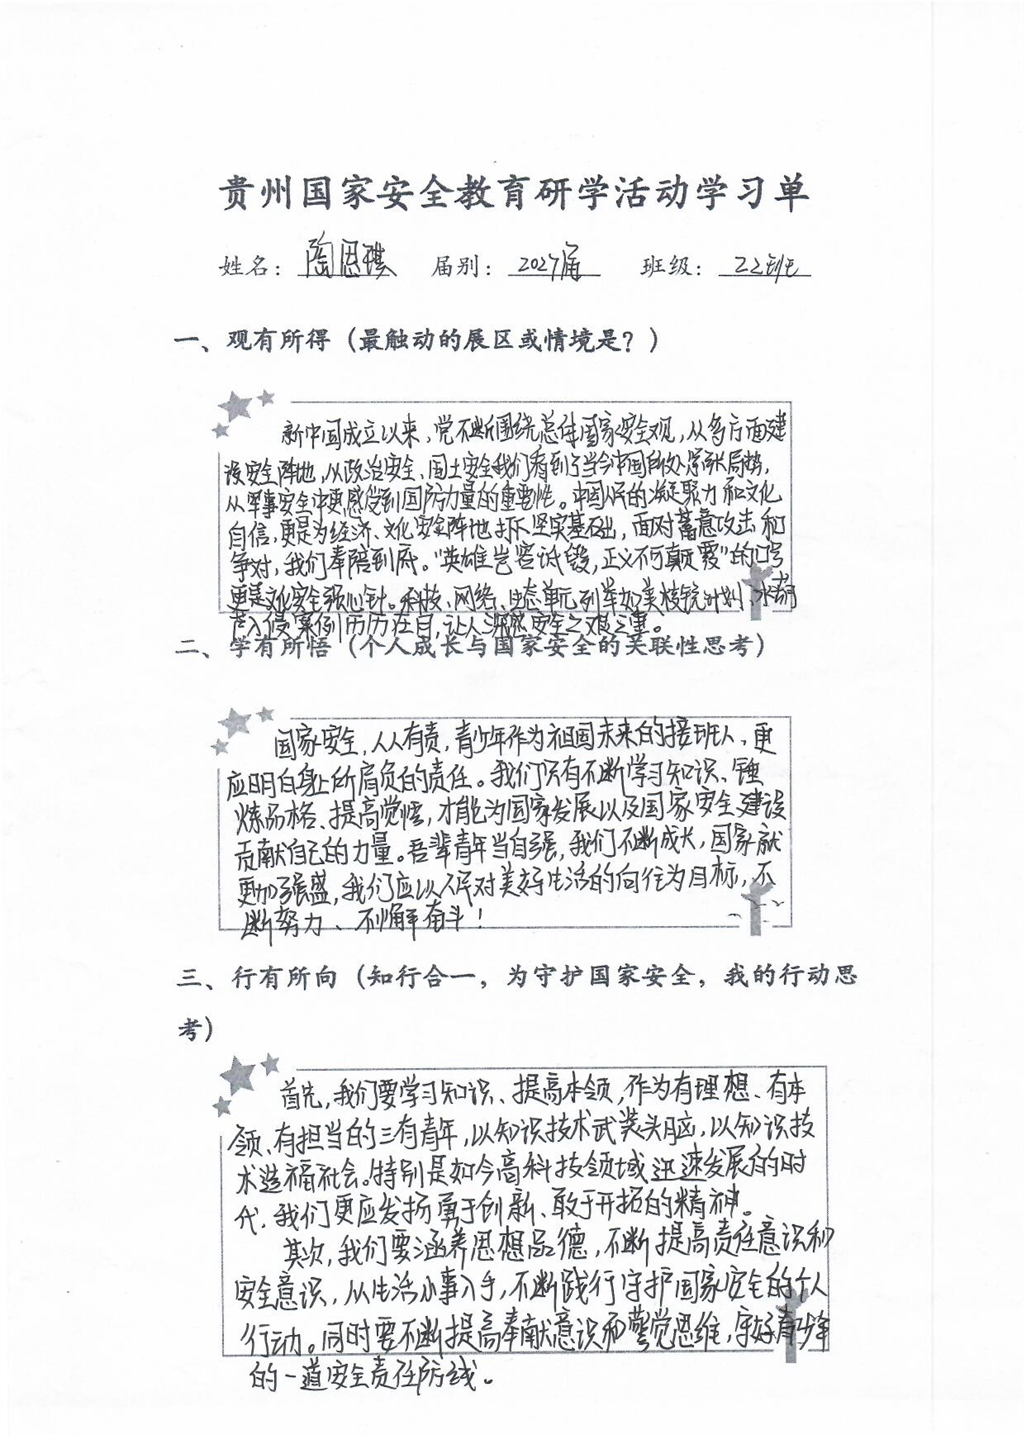 贵州国家安全教育研学活动学习单
姓名：陶思琪 届别：2027届 班级：22班
一、观有所得（最触动的展区或情境是？）
新中国成立以来，党不断围绕总体国家安全观，从多方面建
设安全阵地，从政治安全、国土安全我们看到了当今中国所处紧张局势，
从军事安全中更感受到国防力量的重要性。中国人民的凝聚力和文化
自信，更是为经济、文化安全阵地打下坚实基础，面对蓄意攻击和
争对，我们奉陪到底。“英雄岂容诋毁，正义不可颠覆”的口号
更是文化安全强心针。科技、网络、生态单元列举如美核统计划、水葫
芦入侵案例历历在目，让人深感安全之艰之重。
二、学有所悟（个人成长与国家安全的关联性思考）
国家安全，人人有责，青少年作为祖国未来的接班人，更
应明白身上所肩负的责任。我们只有不断学习知识、锤
炼品格、提高觉悟，才能为国家发展以及国家安全建设
贡献自己的力量。吾辈青年当自强，我们不断成长，国家就
更加强盛，我们应以人民对美好生活的向往为目标，不
断努力、不懈奋斗！
三、行有所向（知行合一，为守护国家安全，我的行动思
考）
首先，我们要学习知识、提高本领，作为有理想、有本
领、有担当的三有青年，以知识技术武装头脑，以知识技
术造福社会。特别是如今高科技领域迅速发展的时
代，我们更应发扬勇于创新、敢于开拓的精神。
其次，我们要涵养思想品德，不断提高责任意识和
安全意识，从生活小事入手，不断践行守护国家安全的个人
行动。同时要不断提高奉献意识和警觉思维，守好青少年
的一道安全责任防线。